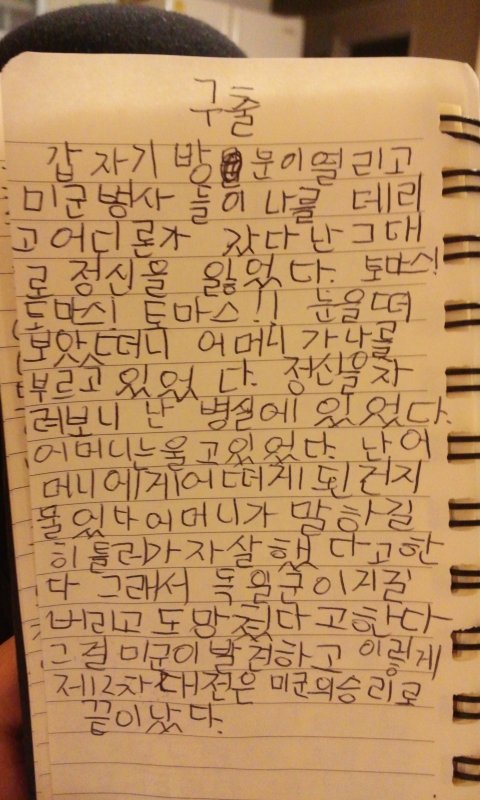 구출
갑자기 방문이열리고
미군병사 들이 나를 데리
고 어디론가 갔다 난 그대
로 정신을 잃었다. 토마스!
토마스! 토마스!! 눈을떠
보앗더니 어머니가 나를
부르고 있었다. 정신을차
려보니 난 병실에 있었다.
어머니는울고있었다. 난 어
머니에게어떠게된건지
물었다어머니가 말하길
히틀러가자살했다고한
다 그래서 독일군이지길
버리고 도망쳤다고한다
그걸 미군이발견하고 이렇게
제12차대전은 미군의승리로
끝이났다.